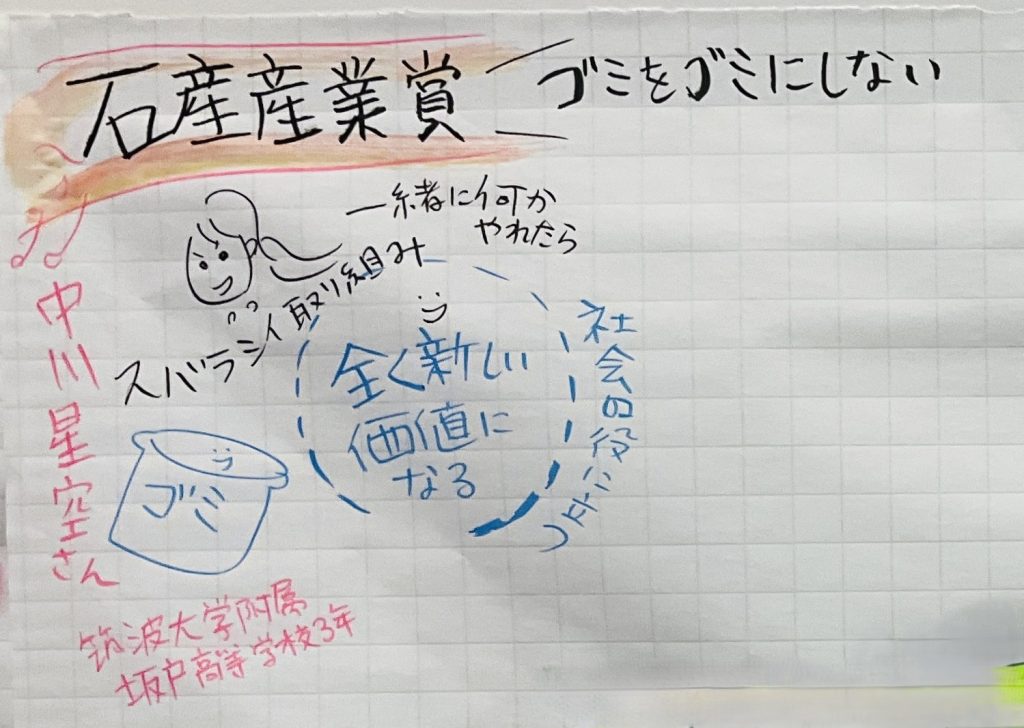 石産産業賞
ゴミをゴミにしない
一緒に何か
やれたら
スバラシイ取り組み
全く新しい
価値に
なる
社会の役に立つ
中川星空さん
ゴミ
筑波大学附属
坂戸高等学校3年